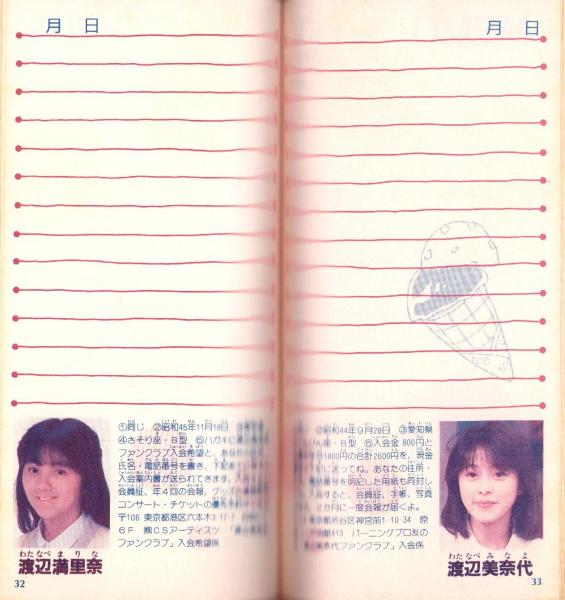 月 日
①同じ ②昭和45年11月18日
④さそり座・B型 ⑤ハガキに
ファンクラブ入会希望と、
氏名・電話番号を書き、下記
入会案内書が送られてきます。入
会員証、年4回の会報、グッズ
コンサート・チケットの優先
〒106 東京都港区六本木3
6F ㈱CSアーティスツ
ファンクラブ」入会希望係
わたなべ まりな
渡辺満里奈
32
月 日
②昭和44年9月28日 ③愛知県
座・B型 ⑤入会金800円と
1800円の合計2600円を、現金
に送ってね。あなたの住所・
電話番号を明記した用紙も同封し
すると、会員証、手帳、写真
2か月に一度会報が届くよ。
渋谷区神宮前1-10-34 原
413 バーニングプロ友の
美奈代ファンクラブ」入会係
わたなべ みなよ
渡辺美奈代
33